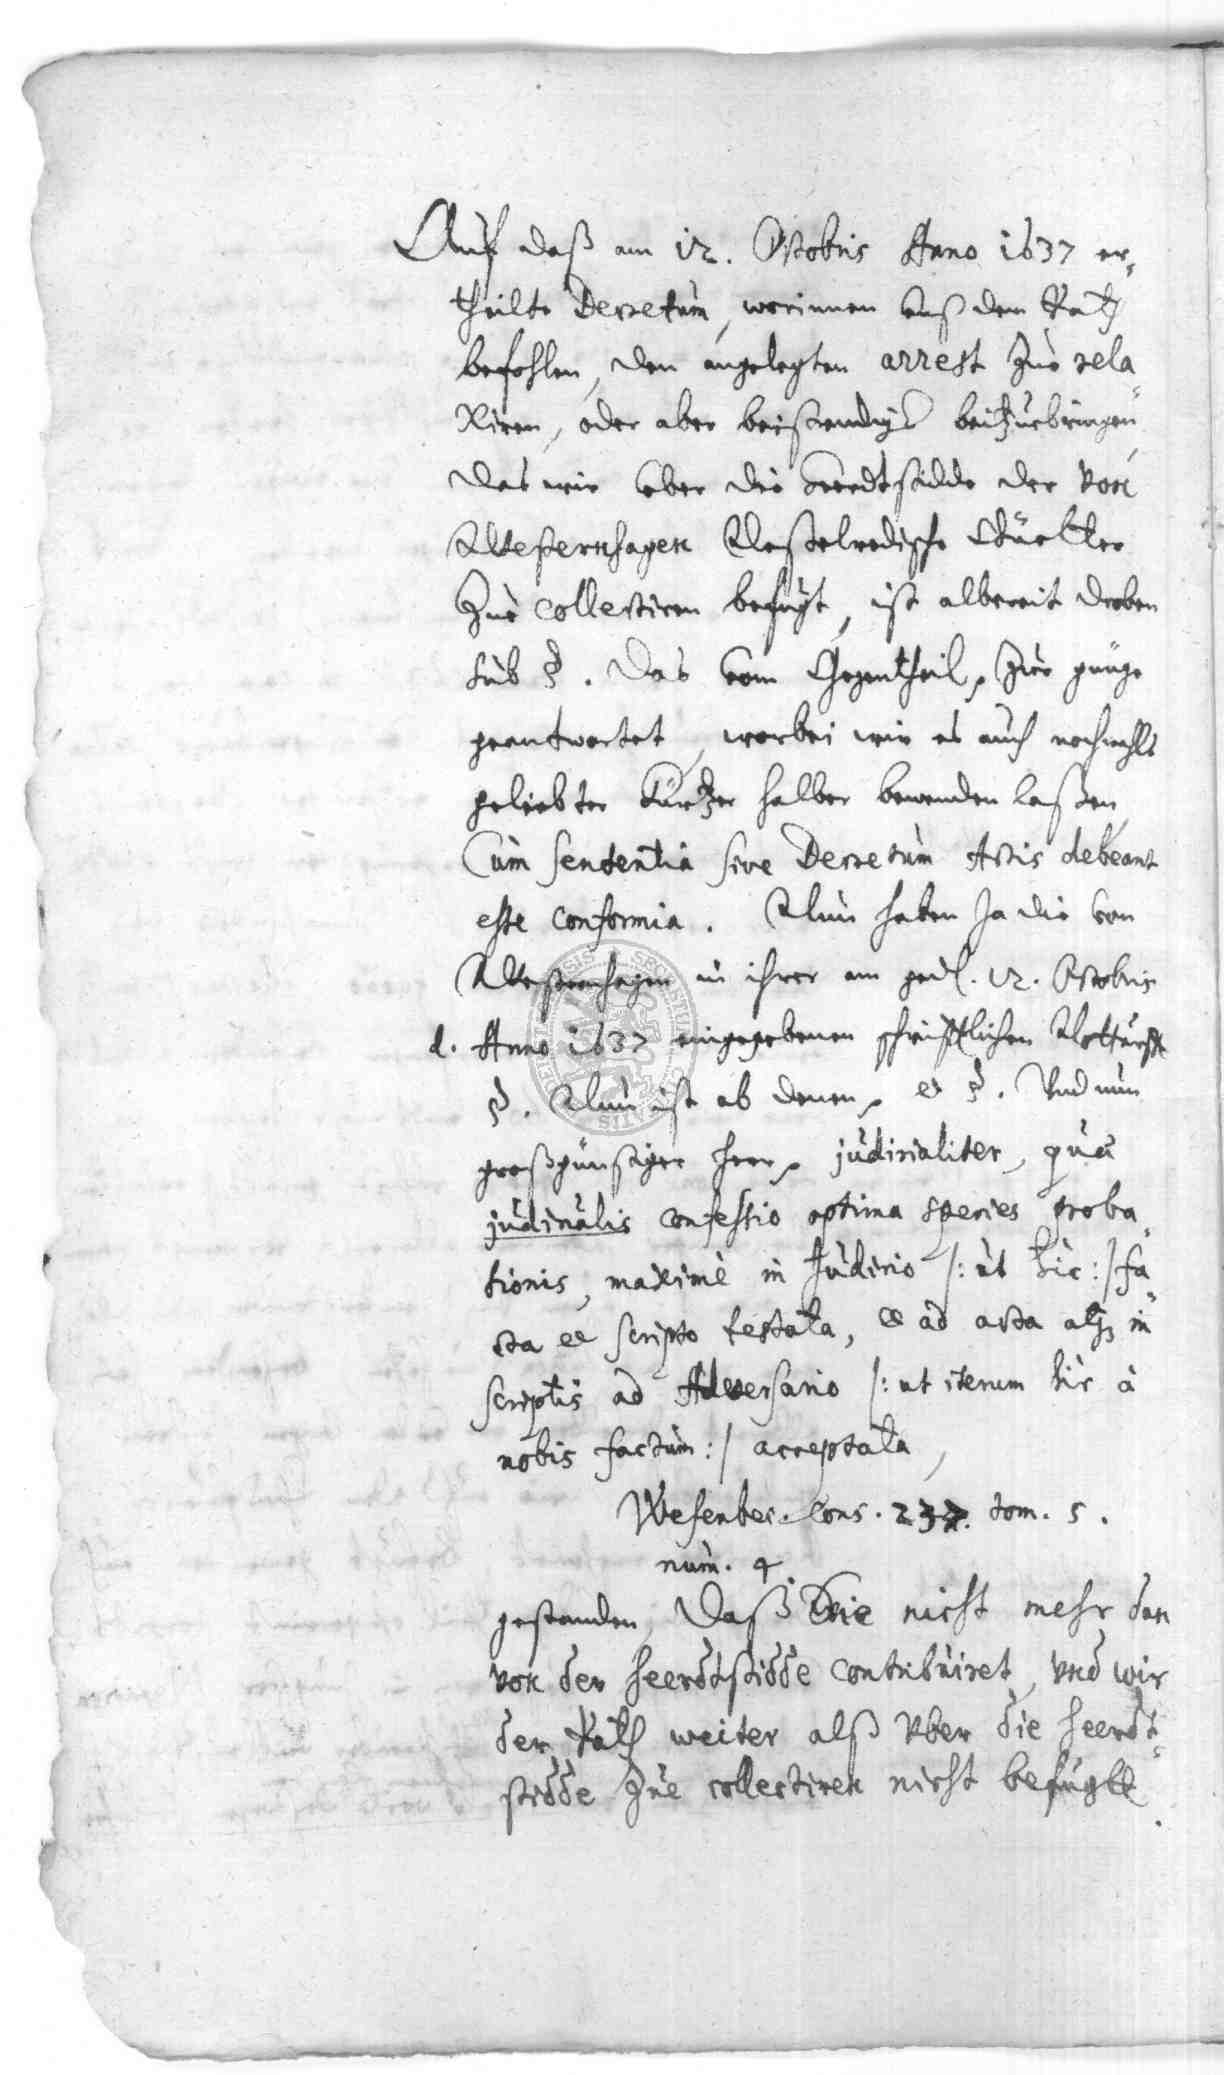 Auf daß am 12. Octobris Anno 1637 er-
theilte Decretum, worinnen vnß dem Rath
befohlen, den angelegten arrest zue rela-
xiren, oder aber beizuebringen,
das wir vber die Heerdtstidde der von
Westernhagen Güetter
zue collectiren befugt, ist albereit droben
sub §. Das vom Gegentheil, zur gnüge
geantwortet, worbei wir es auch nochmahls
geliebter Kürtze halber bewenden laßen,
Cum sententia sive Decretum Actis debeant
esse conformia. Nun haben Ja die von
Westernhagen in ihrer am ged. 12. Octobris
d. Anno 1637 eingegebenen schrifftlichen
§. Nun ist ob denen, et §. Vnd nun
großgünstiger Herr, judicialiter, quà
judicialis confessio optima species proba-
tionis, maximè in Judicio /: ùt hìc :/ fa-
cta et scripto testata, et ad acta atque in
scriptis ad Adversario /: ut iterum hìc à
nobis factum :/ acceptata,
Wesenbec. Cons. 237. tom. 5.
num. 4
gestanden, Daß Sie nicht mehr dan
von der heerdtstidde contribuiret, vnd wir
der Rath weiter alß vber die heerdt-
stidde zue collectiren nicht befugtt.